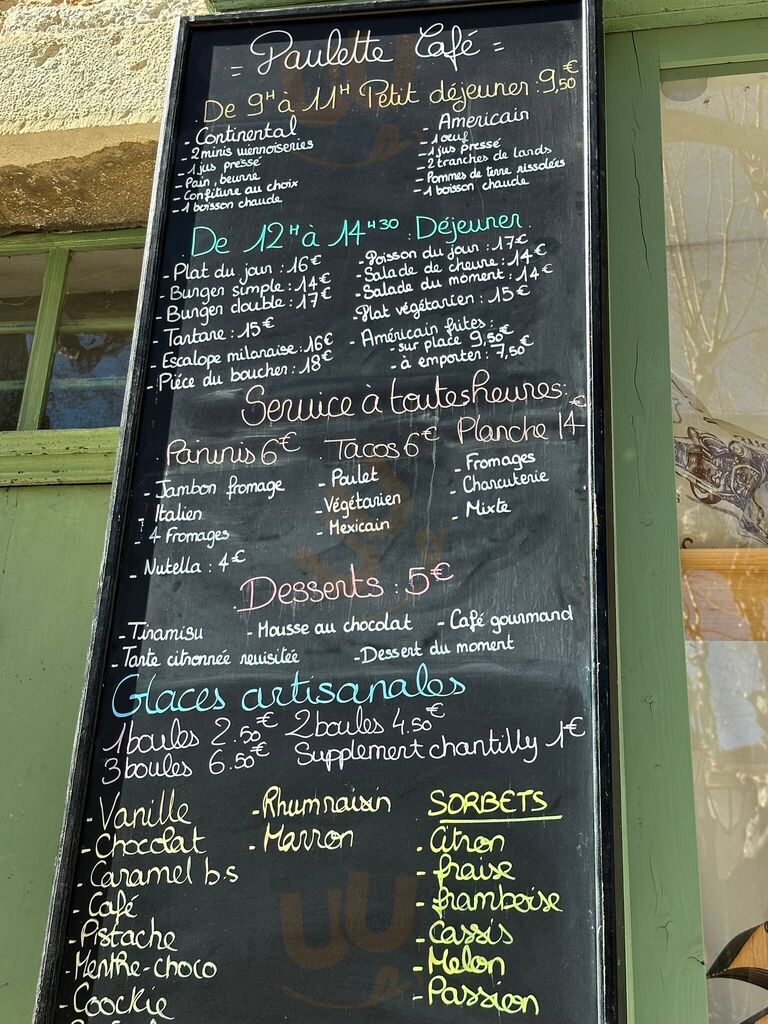 = Paulette Café =
De 9H à 11H Petit déjeuner : 9,50€
- Continental
- 2 minis viennoiseries
- 1 jus pressé
- Pain, beurre
- Confiture au choix
- 1 boisson chaude
- Americain
- 1 œuf
- 1 jus pressé
- 2 tranches de lards
- Pommes de terre rissolées
- 1 boisson chaude
De 12H à 14H30 Déjeuner
- Plat du jour : 16€
- Burger simple : 14€
- Burger double : 17€
- Tartare : 15€
- Escalope milanaise : 16€
- Pièce du boucher : 18€
- Poisson du jour : 17€
- Salade de chèvre : 14€
- Salade du moment : 14€
- Plat végétarien : 15€
- Américain frites :
- sur place 9,50€
- à emporter : 7,50€
Service à toutes heures :
Paninis 6€
- Jambon fromage
- Italien
- 4 Fromages
- Nutella : 4€
Tacos 6€
- Poulet
- Végétarien
- Mexicain
Planche 14€
- Fromages
- Charcuterie
- Mixte
Desserts : 5€
- Tiramisu - Mousse au chocolat - Café gourmand
- Tarte citronnée revisitée - Dessert du moment
Glaces artisanales
1 boules 2.50€ 2 boules 4.50€
3 boules 6.50€ Supplement chantilly 1€
- Vanille
- Chocolat
- Caramel b.s
- Café
- Pistache
- Menthe-choco
- Coockie
- Rhum raisin
- Marron
SORBETS
- Citron
- fraise
- framboise
- Cassis
- Melon
- Passion